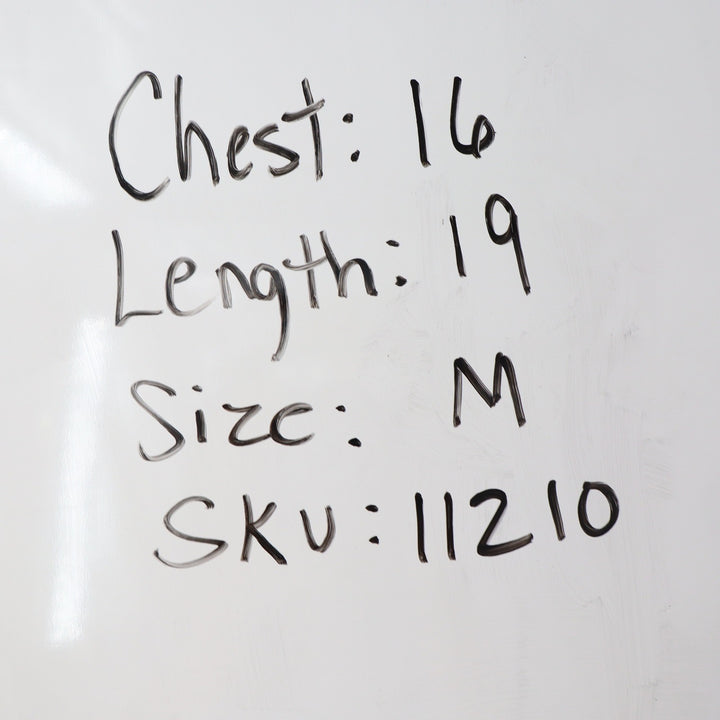 Chest: 16
Length: 19
Size: M
SKU: 11210